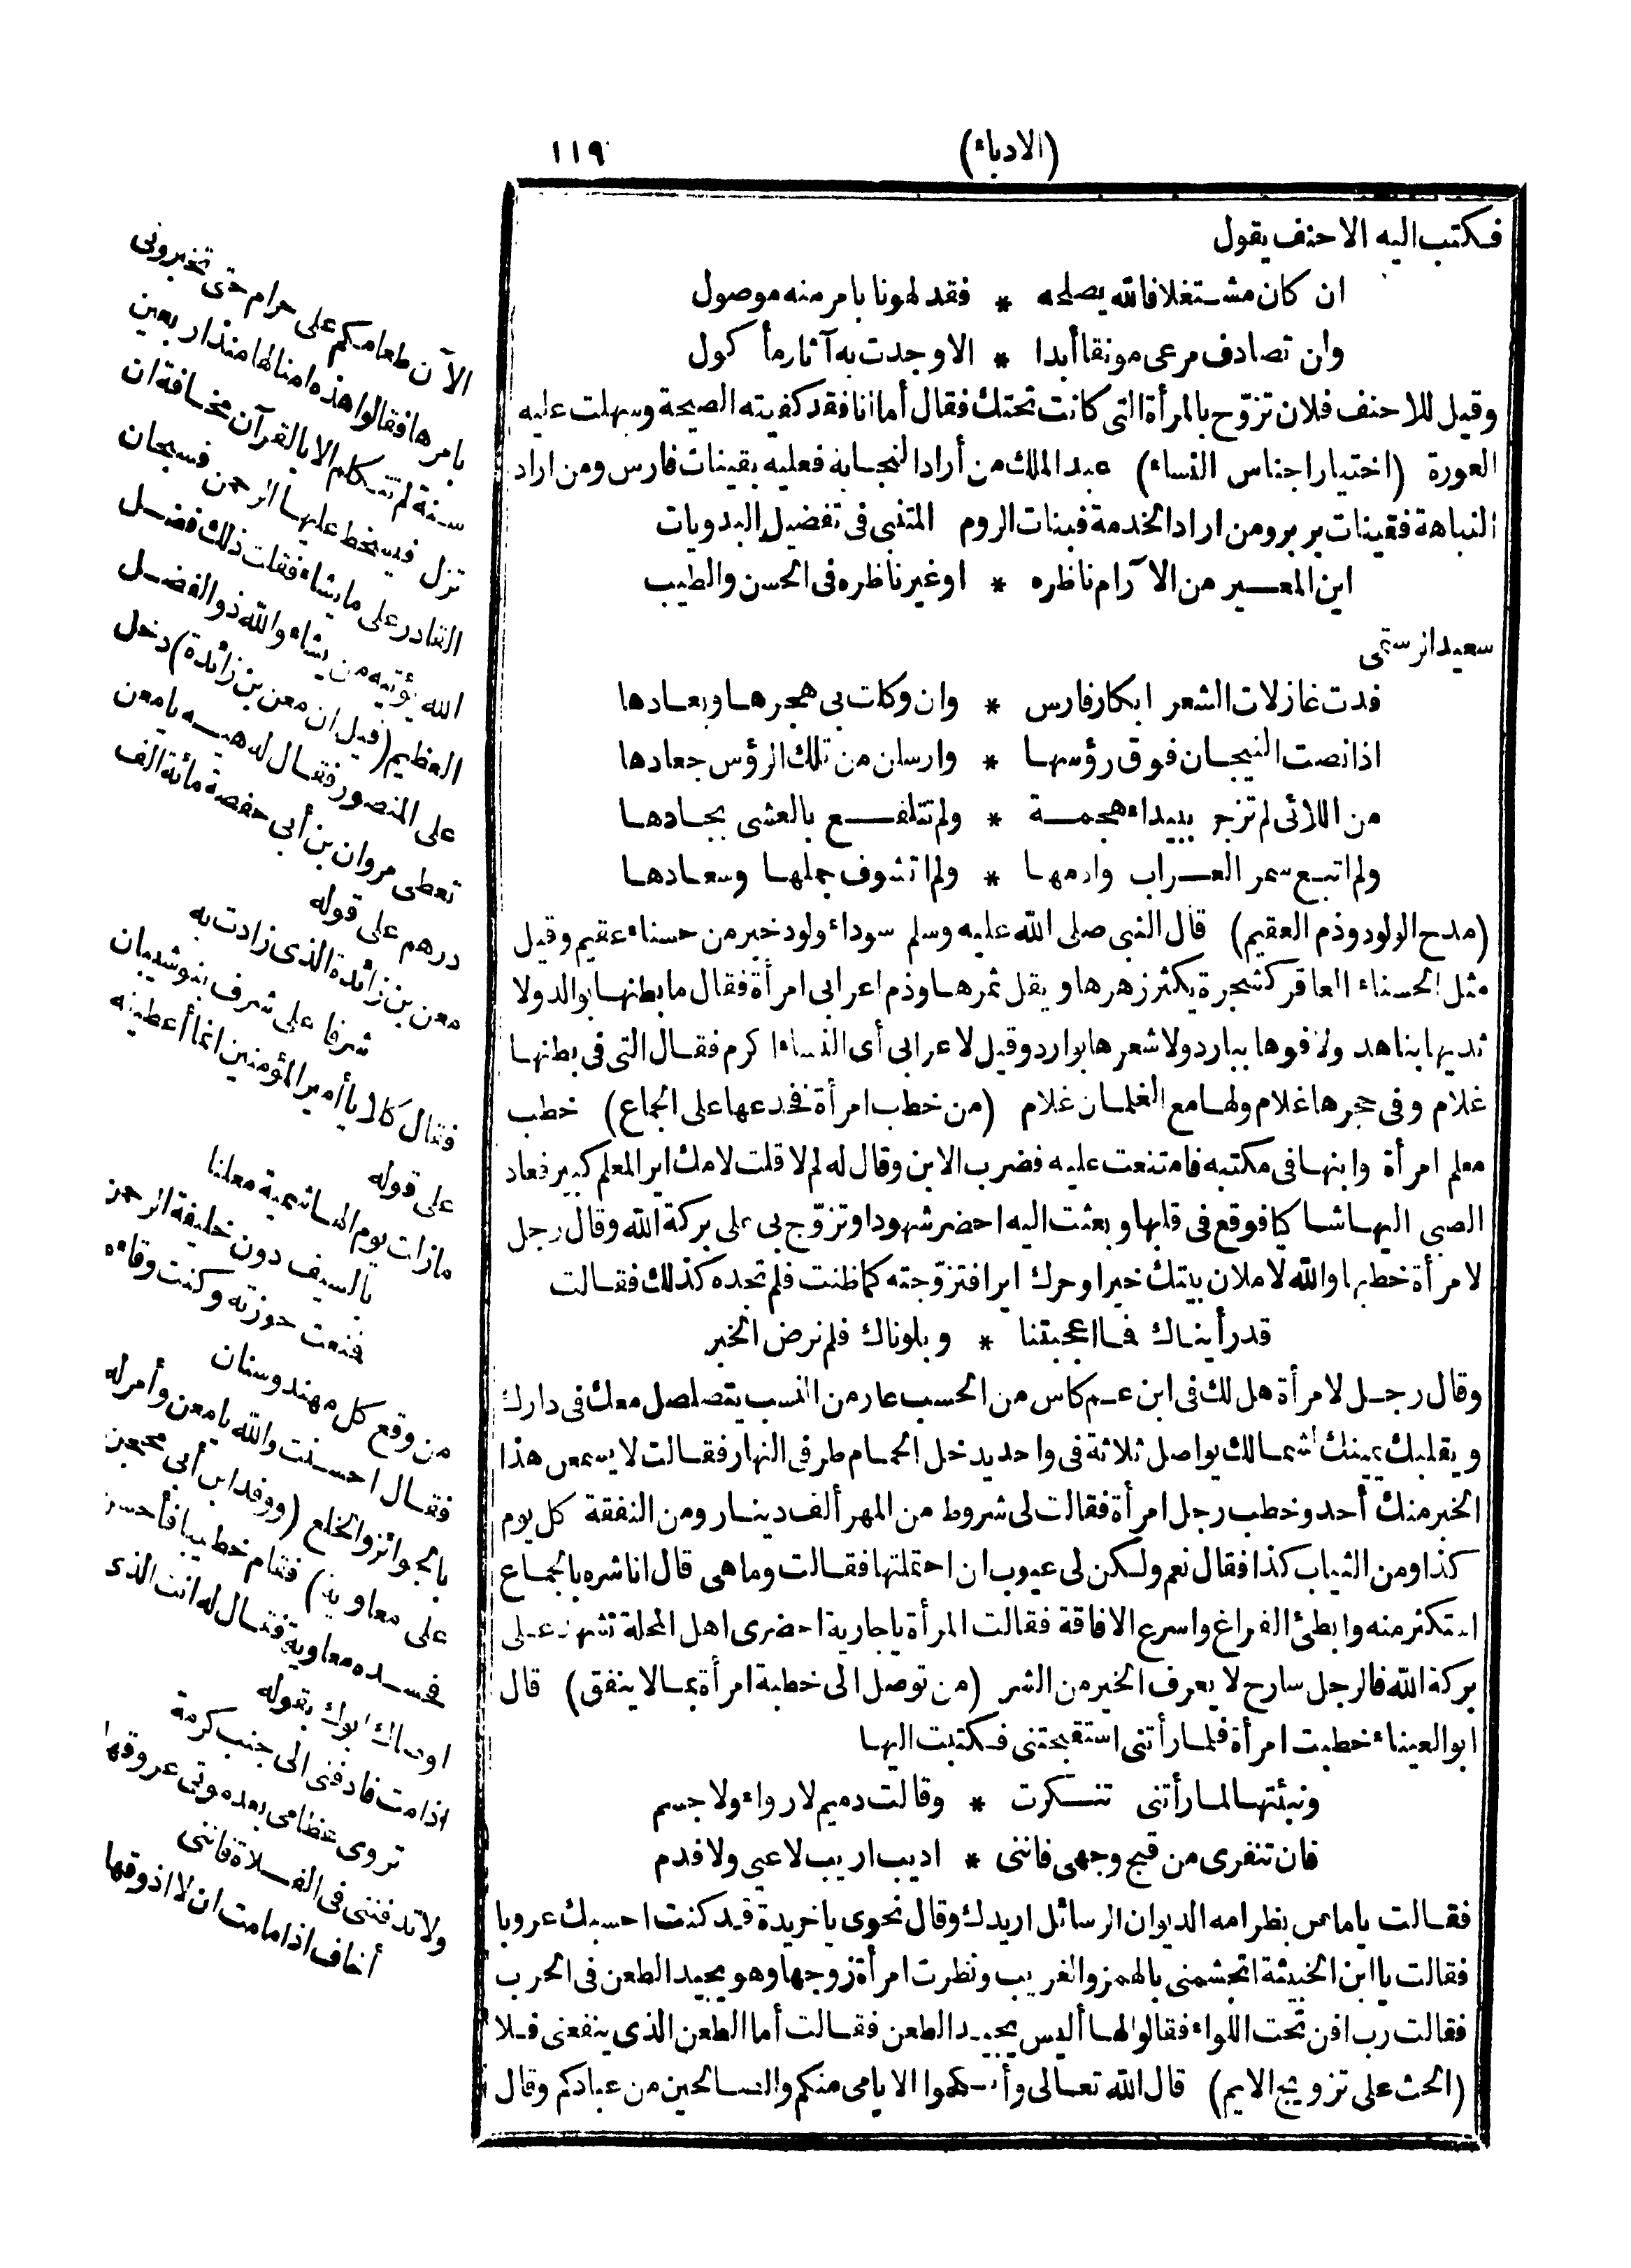 (الادباء)
١١٩
فكتب اليه الاحنف يقول
ان كان مشتغلا فالله يصلحه * فقد لهونا بامر منه موصول
وان تصادف مرعى مونقا أبدا * الا وجدت به آثار مأكول
وقيل للاحنف فلان تزوّج بالمرأة التى كانت تحتك فقال أما انا فقد كفيته الصيحة وسهلت عليه
العورة (اختيار اجناس النساء) عبد الملك من أراد النجابة فعليه بقينات فارس ومن اراد
النباهة فقينات بربر ومن اراد الخدمة فبنات الروم المتنبى فى تفضيل البدويات
اين المعيز من الآرام ناظره * او غير ناظره فى الحسن والطيب
سعيد الرستمى
فدت غازلات الشعر ابكار فارس * وان وكلت بى هجرها وبعادها
اذا نصت التيجان فوق رؤسها * وارسلن من تلك الرؤس جعادها
من اللائى لم تزجر ببيداء هجمة * ولم تتلفع بالعشى بجادها
ولم اتبع سمر العراب وادمها * ولم اتشوف جملها وسعادها
(مدح الولود وذم العقيم) قال النبى صلى الله عليه وسلم سوداء ولود خير من حسناء عقيم وقيل
مثل الحسناء العاقر كشجرة يكثر زهرها ويقل ثمرها وذم اعرابى امرأة فقال ما بطنها بوالد ولا
ثديها بناهد ولا فوها ببارد ولا شعرها بوارد وقيل لاعرابى أى النساء اكرم فقال التى فى بطنها
غلام وفى حجرها غلام ولها مع الغلمان غلام (من خطب امرأة فخدعها على الجماع) خطب
معلم امرأة وابنها فى مكتبه فامتنعت عليه فضرب الابن وقال له لم لا قلت لامك اير المعلم كبير فعاد
الصبى اليها شاكيا فوقع فى قلبها وبعثت اليه احضر شهودا وتزوّج بى على بركة الله وقال رجل
لامرأة خطبها والله لاملان بيتك خيرا وحرك ايرا فتزوّجته كما ظنت فلم تجده كذلك فقالت
قد رأيناك فما اعجبتنا * وبلوناك فلم نرض الخبر
وقال رجل لامرأة هل لك فى ابن عم كاس من الحسب عار من النسب يتصلصل معك فى دارك
ويقلبك يمينك شمالك يواصل ثلاثة فى واحد يدخل الحمام طرفى النهار فقالت لا يسمعن هذا
الخبر منك أحد وخطب رجل امرأة فقالت لى شروط من المهر ألف دينار ومن النفقة كل يوم
كذا ومن الثياب كذا فقال نعم ولكن لى عيوب ان احتملتها فقالت وما هى قال انا شره بالجماع
استكثر منه وابطئ الفراغ واسرع الافاقة فقالت المرأة يا جارية احضرى اهل المحلة تشهد على
بركة الله فالرجل سارح لا يعرف الخير من الشر (من توصل الى خطبة امرأة بما لا ينفق) قال
ابو العيناء خطبت امرأة فلما رأتنى استقبحتنى فكتبت اليها
ونبئتها لما رأتنى تنكرت * وقالت دميم لا رواء ولا جسم
فان تنفرى من قبح وجهى فاننى * اديب اريب لا عيى ولا فدم
فقالت يا ماص بظر امه الديوان الرسائل اريدك وقال نحوى يا خريدة قد كنت احسبك عروبا
فقالت يا ابن الخبيثة اتجشمنى بالهمز والغريب ونظرت امرأة زوجها وهو يجيد الطعن فى الحرب
فقالت رب افن تحت اللواء فقالوا لها أليس يجيد الطعن فقالت أما الطعن الذى ينفعنى فلا
(الحث على تزويج الايم) قال الله تعالى وأنكحوا الايامى منكم والصالحين من عبادكم وقال
الآن طعامكم على حرام حتى تخبرونى
بامرها فقالوا هذه امنا لها منذ اربعين
سنة لم تتكلم الا بالقرآن مخافة ان
تزل فيسخط عليها الرحمن فسبحان
القادر على ما يشاء فقلت ذلك فضل
الله يؤتيه من يشاء والله ذو الفضل
العظيم (قيل ان معن بن زائدة) دخل
على المنصور فقال له هيه يا معن
تعطى مروان بن أبى حفصة مائة الف
درهم على قوله
معن بن زائدة الذى زادت به
شرفا على شرف بنو شيبان
فقال كلا يا أمير المؤمنين انما أعطيته
على قوله
مازلت يوم الهاشمية معلنا
بالسيف دون خليفة الرحمن
فمنعت حوزته وكنت وقاءه
من وقع كل مهند وسنان
فقال احسنت والله يا معن وأمر له
بالجوائز والخلع (ووفد ابن أبى محجن
على معاوية) فقام خطيبا فأحسن
فحسده معاوية فقال له انت الذى
اوصاك ابوك بقوله
اذا مت فادفنى الى جنب كرمة
تروى عظامى بعد موتى عروقها
ولا تدفننى فى الفلاة فاننى
أخاف اذا ما مت ان لا اذوقها